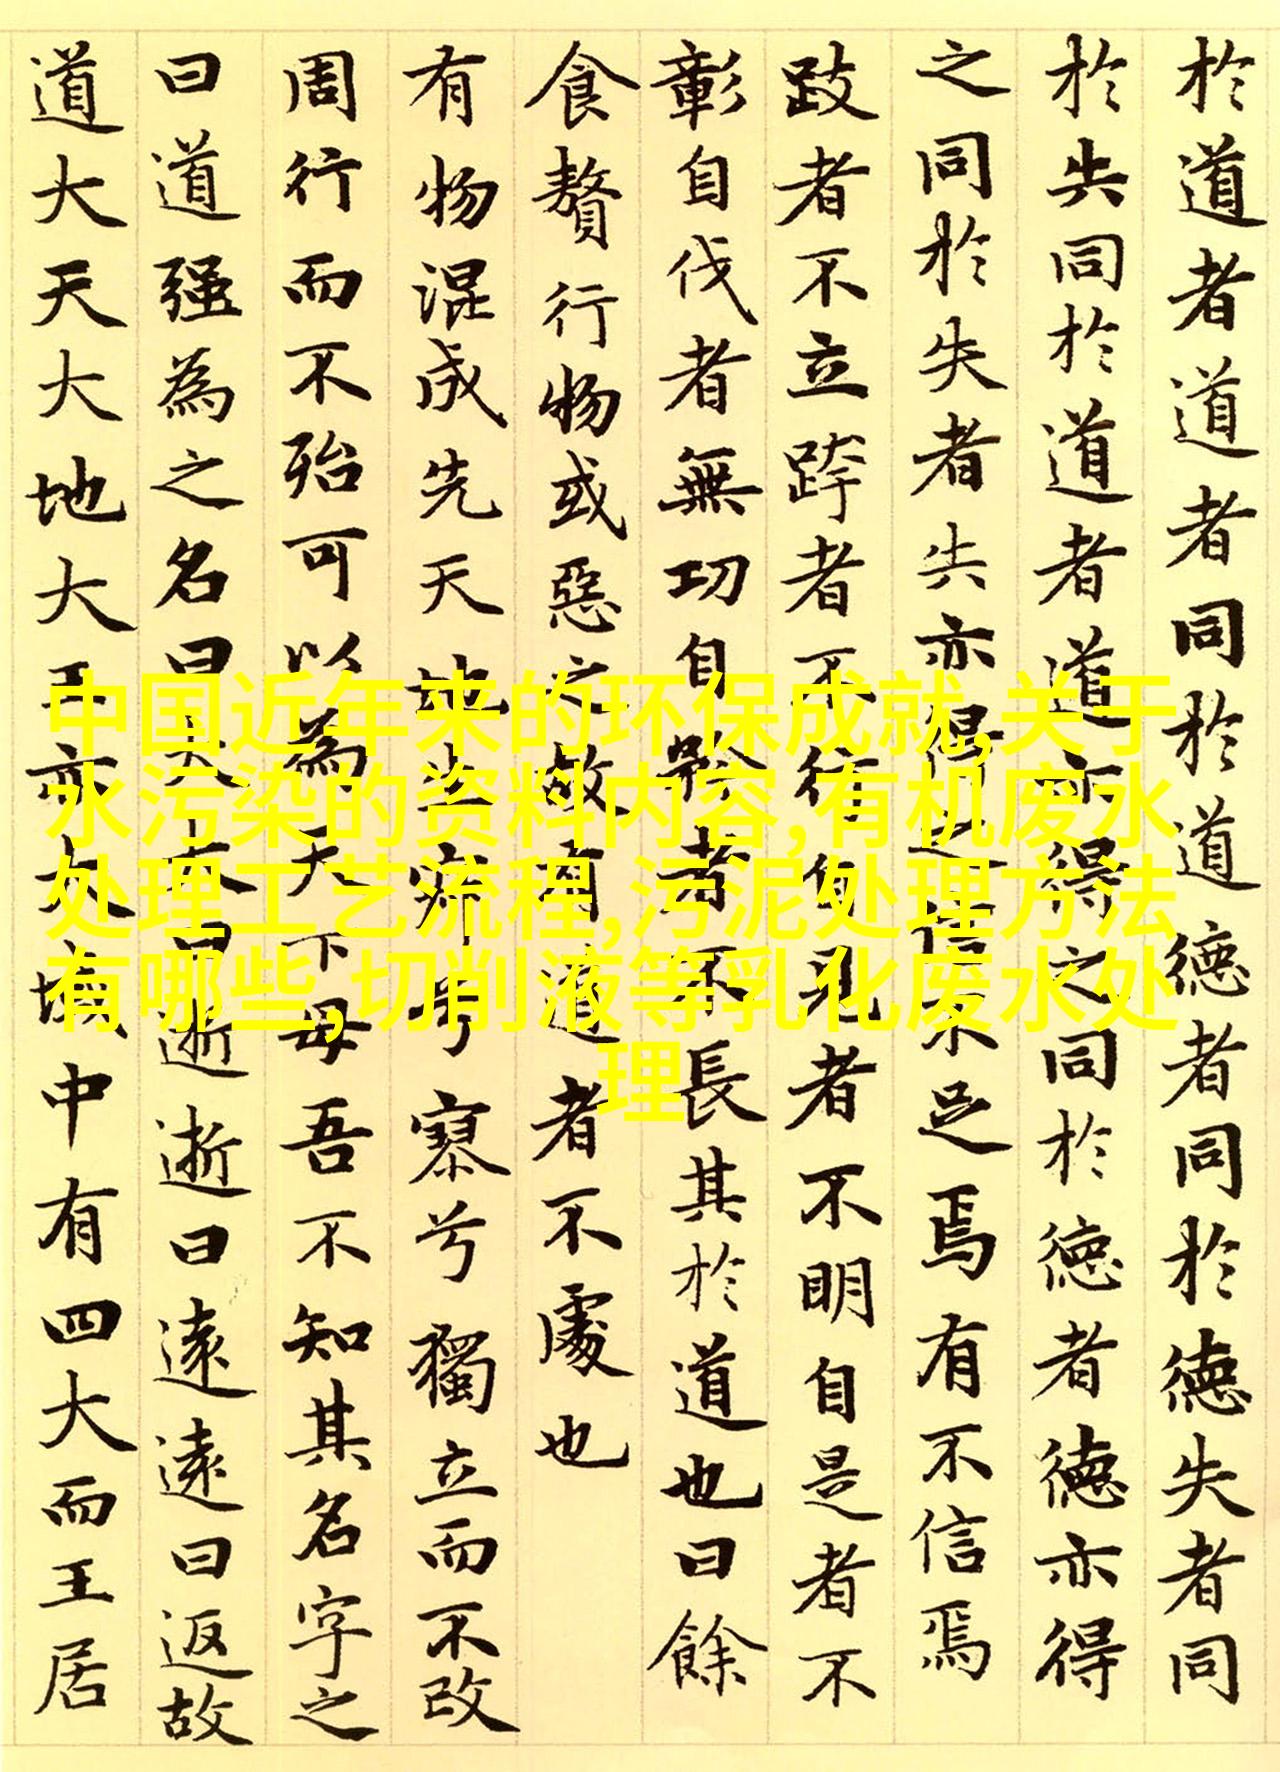 於道者道者同於道德者同於德失者同
於失同於道者道亦得之同於德者德亦得
之同於失者失亦得之信不足焉有不信焉
跂者不立跨者不行自見者不明自是者不
彰自伐者無功自矜者不長其於道也曰餘
食贅行物或惡之故有道者不處也
有物混成先天地生寂兮寥兮獨立而不改
周行而不殆可以為天下母吾不知其名字之
曰道强為之名曰大大曰逝逝曰遠遠曰返故
道大天大地大王亦大域中有四大而王居
中国近年来的环保成就,关于
水污染的资料内容,有机废水
处理工艺流程,污泥处理方法
有哪些,切削液等乳化废水处
理